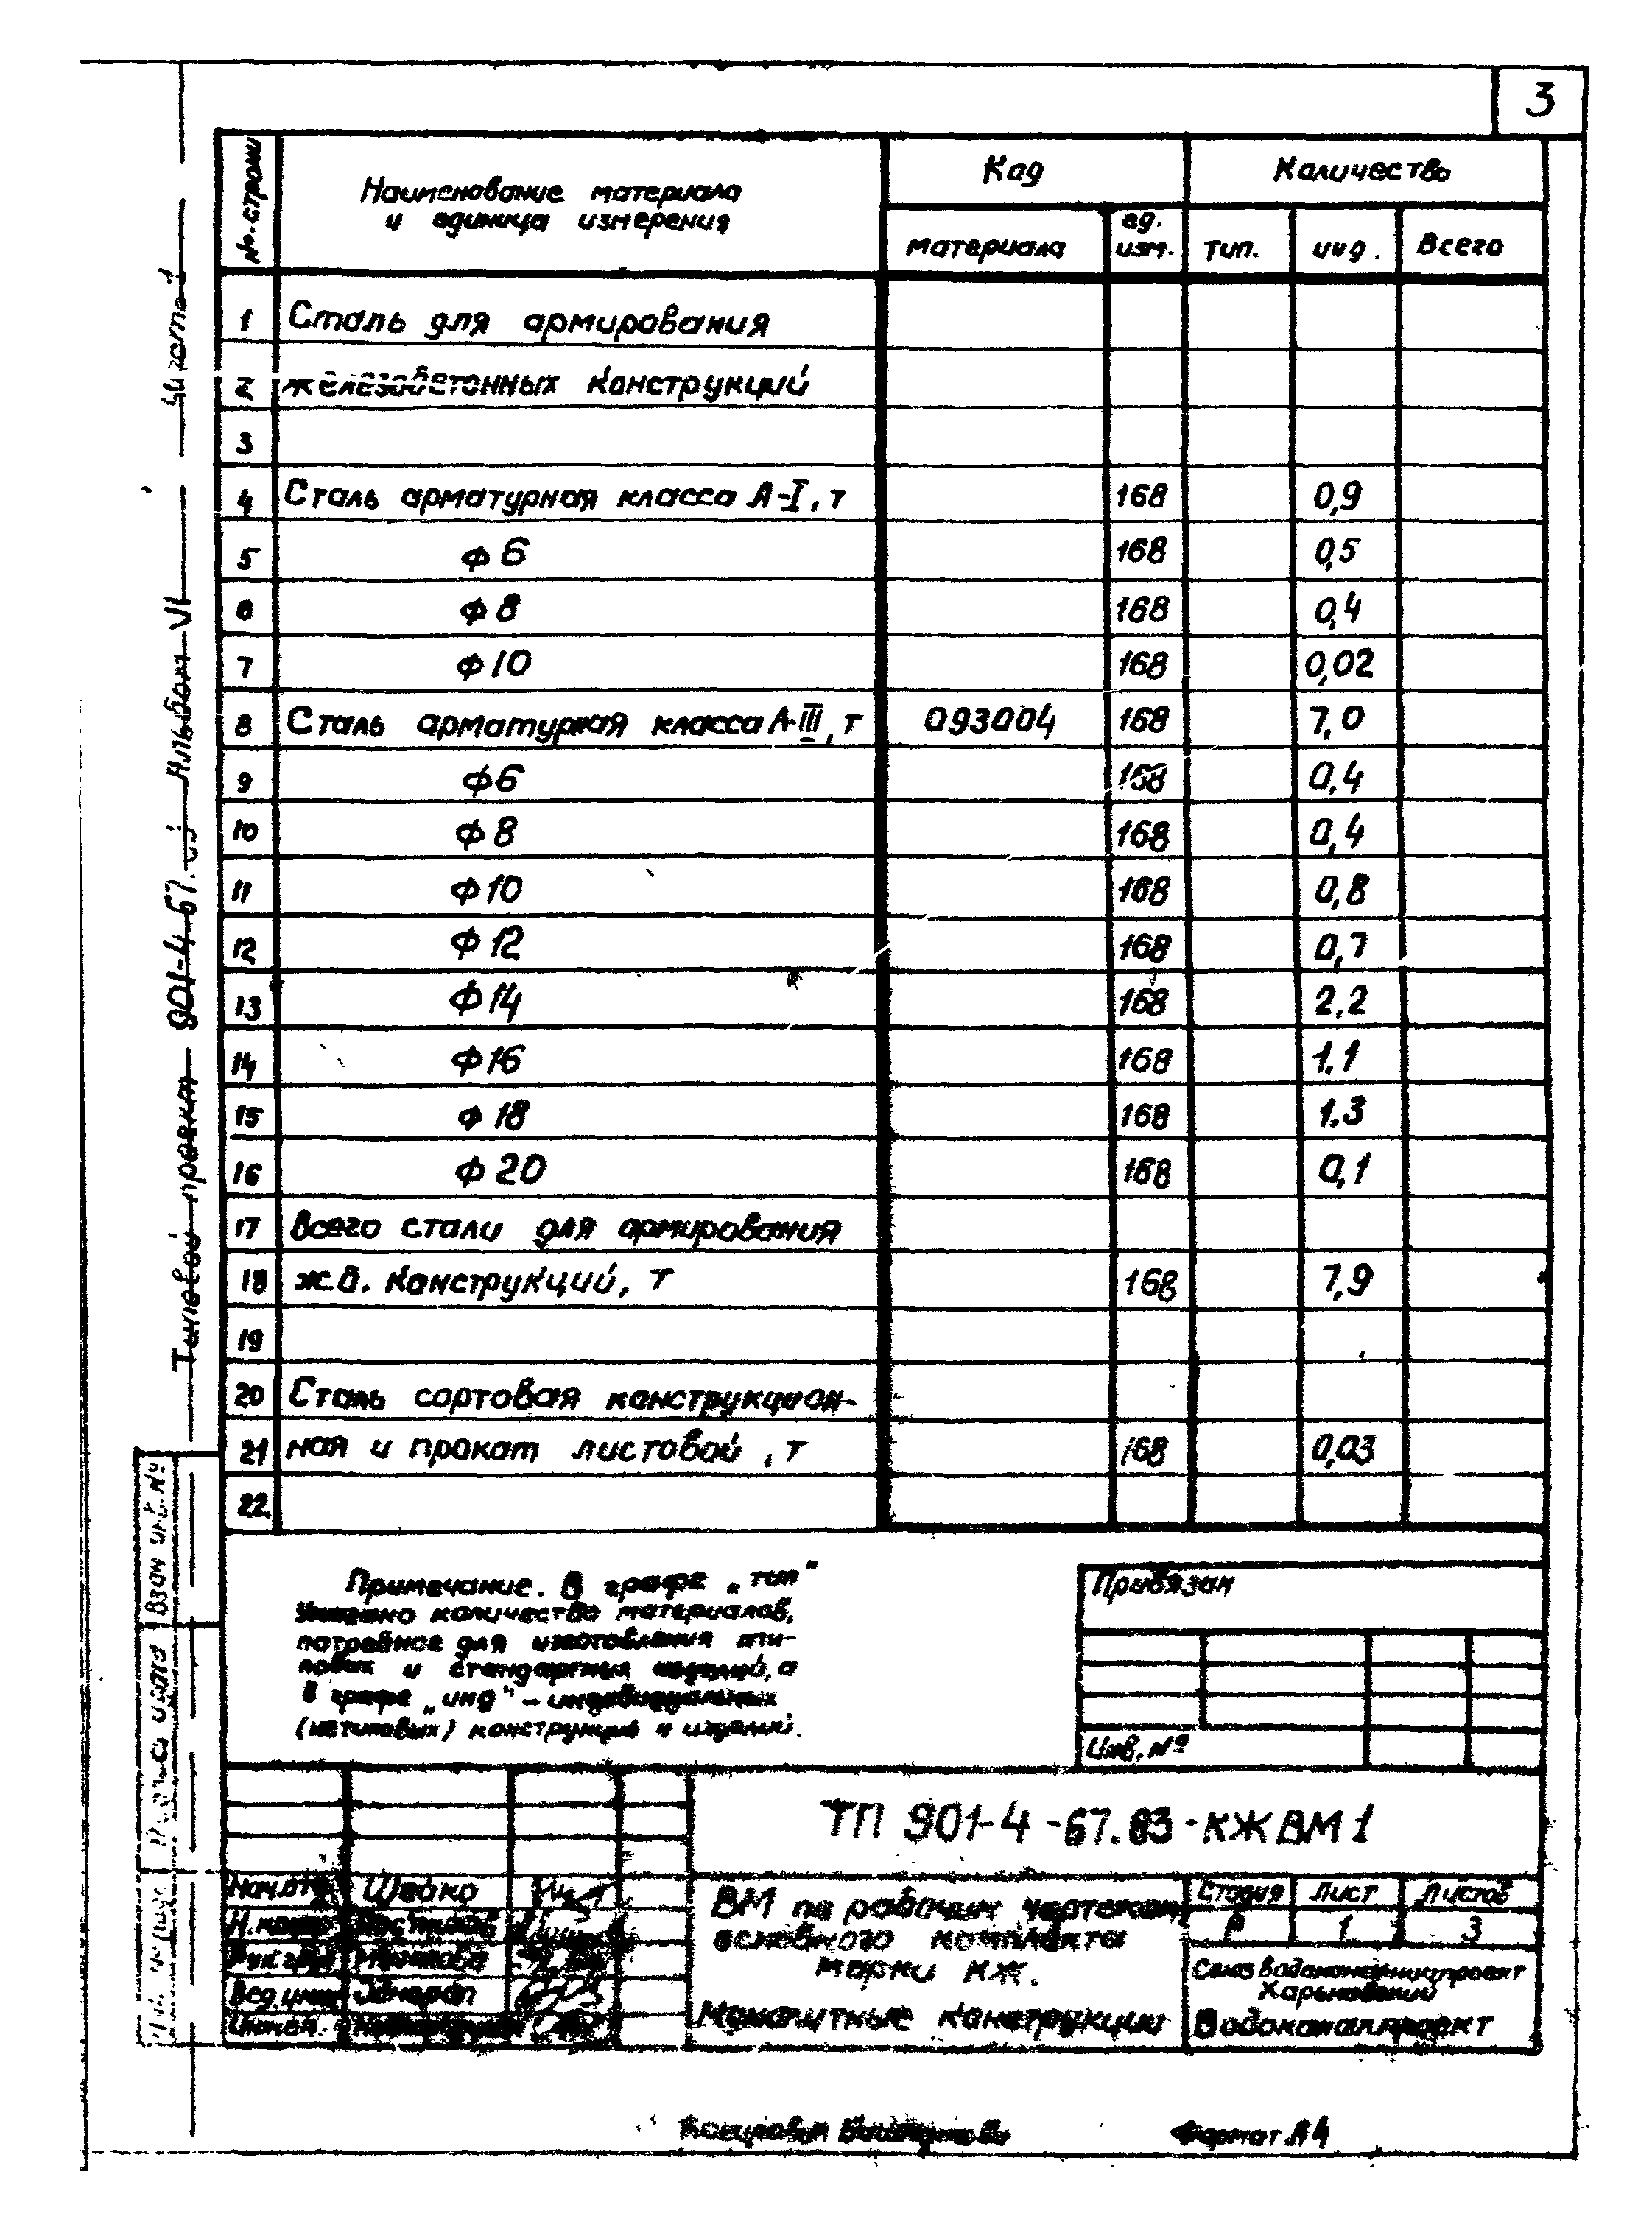 3
№ строки
Наименование материала
и единица измерения
Код
Количество
материала
ед.
изм.
тип.
инд.
Всего
1 Сталь для армирования
2 железобетонных конструкций
3
4 Сталь арматурная класса А-I, т 168 0,9
5 ф 6 168 0,5
6 ф 8 168 0,4
7 ф 10 168 0,02
8 Сталь арматурная класса А-III, т 093004 168 7,0
9 ф 6 168 0,4
10 ф 8 168 0,4
11 ф 10 168 0,8
12 ф 12 168 0,7
13 ф 14 168 2.2
14 ф 16 168 1.1
15 ф 18 168 1.3
16 ф 20 168 0,1
17 Всего стали для армирования
18 ж.б. конструкций, т 168 7,9
19
20 Сталь сортовая конструкцион-
21 ная и прокат листовой, т 168 0,03
22
Примечание. В графе „тип"
Указано количество материалов,
потребное для изготовления ти-
повых и стандартных изделий, а
в графе „инд" – индивидуальных
(нетиповых) конструкций и изделий.
Привязан
Инв. №
ТП 901-4-67.83-КЖ ВМ 1
Нач.отд. Швейко
Н.контр.
Рук.груп.
Вед.инж.
Инжен.
ВМ по рабочим чертежам
основного комплекта
марки КЖ.
Монолитные конструкции
Стадия Лист Листов
Р 1 3
Союзводоканалниипроект
Харьковский
Водоканалпроект
Формат А4
Типовой проект 901-4-67. Альбом VI
Взам инв. №